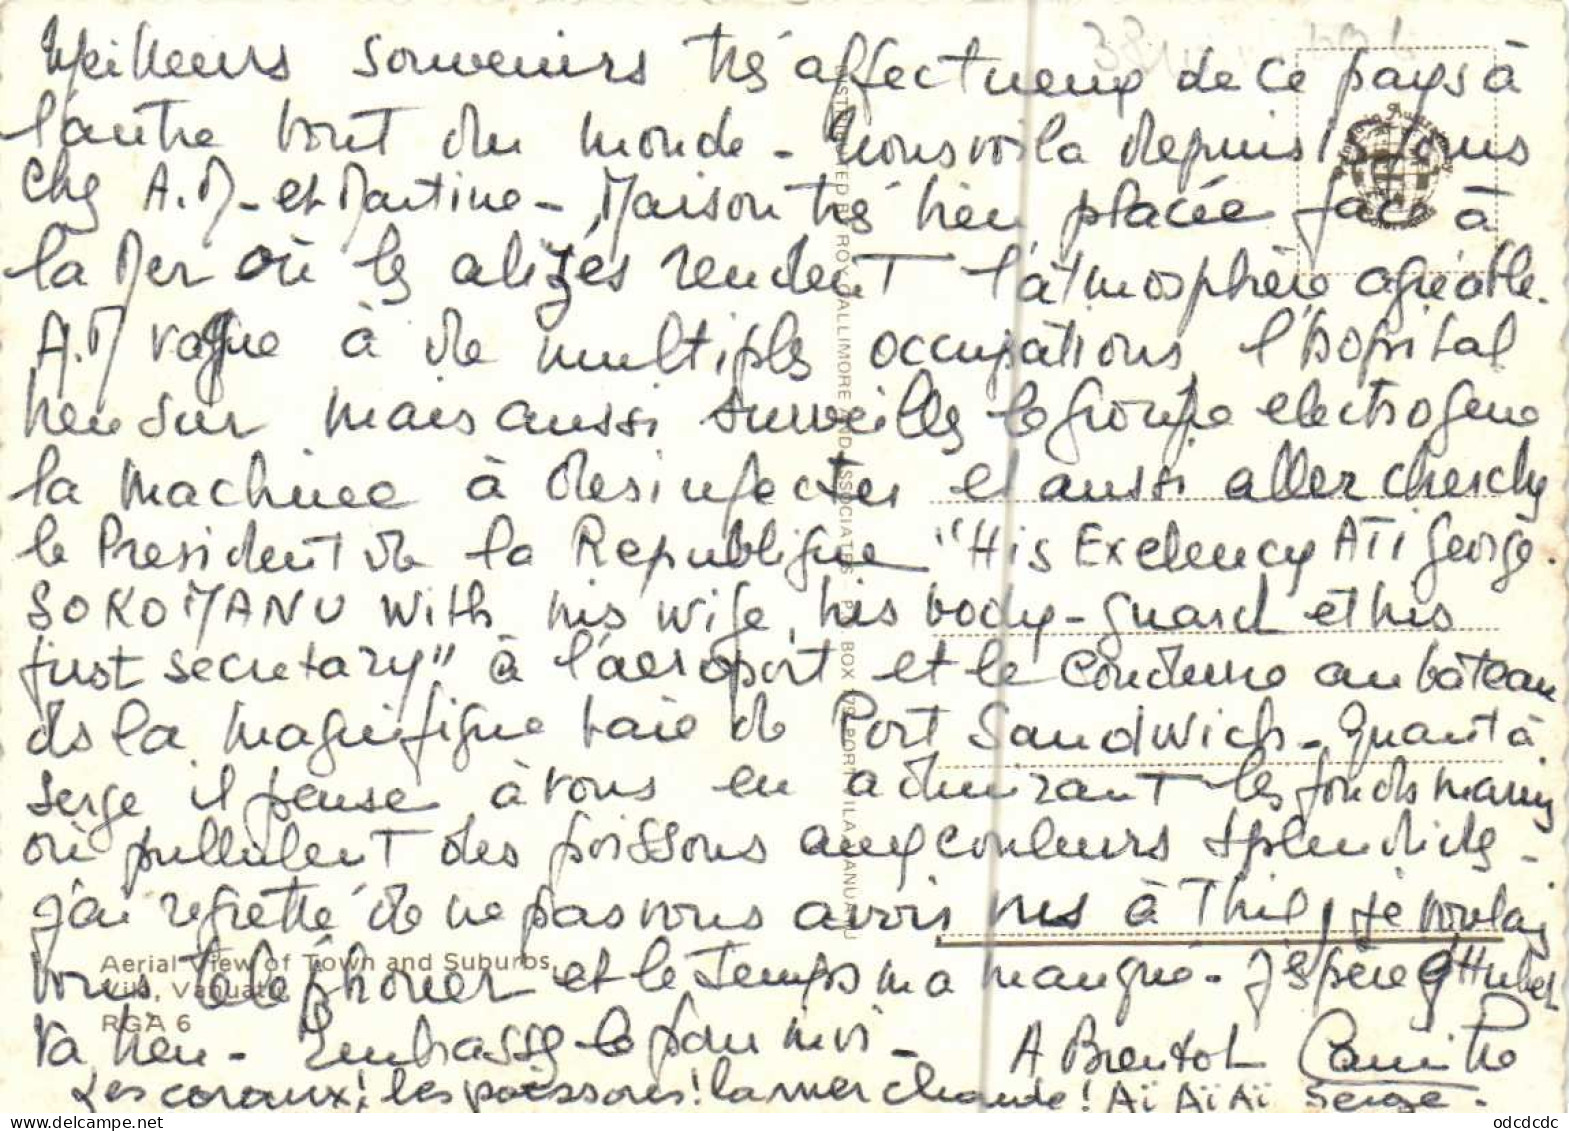 Meilleurs souvenirs très affectueux de ce pays à
l'autre bout du monde - nous voila depuis 15 jours
chez A.M. et Martine - Maison très bien placée face à
la Mer où les alizés rendent l'atmosphère agréable.
A.M vaque à de multiples occupations l'hopital
bien sur mais aussi surveiller le groupe electrogene
la machine à desinfecter et aussi aller chercher
le President de la Republique "His Exelency ATI George
SOKOMANU with his wife, his body-guard et his
just secretary" à l'aeroport et le conduire au bateau
ds la magnifique baie de Port Sandwich - Quant à
Serge il pense à vous en admirant les fonds marins
où pullulent des poissons aux couleurs splendides -
j'ai regretté de ne pas vous avoir vus à Thil, je voulais
vous téléphoner et le temps m'a manqué - J'espère q Hubert
va bien - Embrassez le pour moi -
A Bientot
Les coraux! les poissons! la mer chaude! Aï Aï Aï Serge.
DISTRIBUTED BY ROY CALLIMORE AND ASSOCIATES P.O. BOX PORT VILA VANUATU
Aerial View of Town and Suburbs,
Vila, Vanuatu
RGA 6
odcdcdc